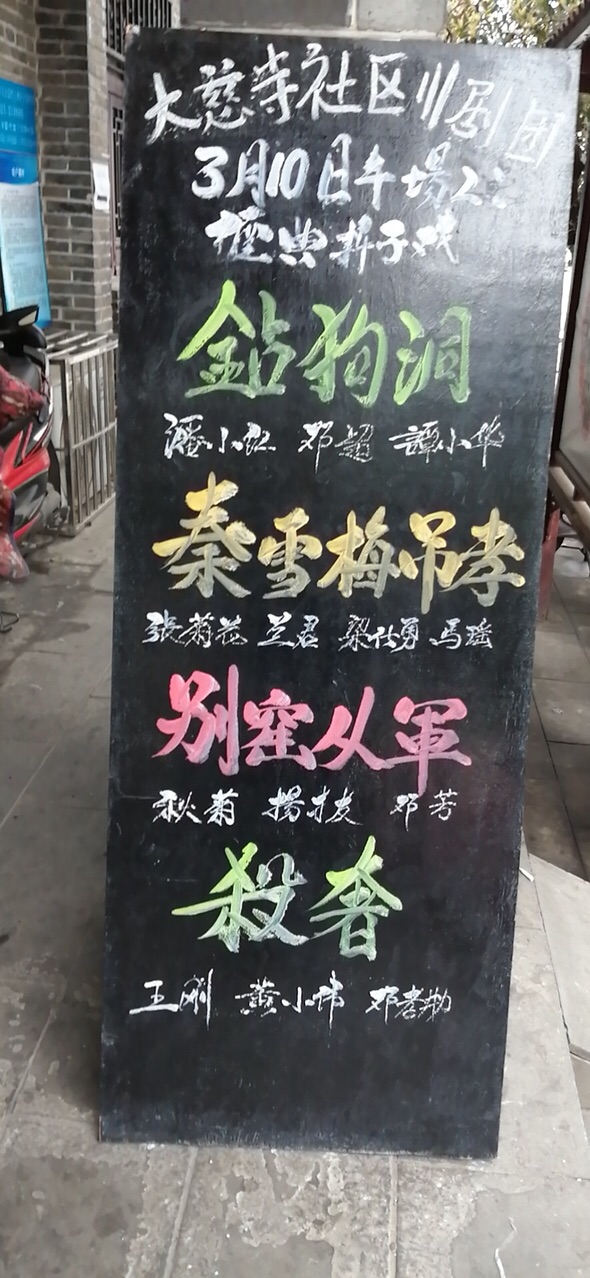 大慈寺社区川剧团
3月10日午場
折子戏
鉆狗洞
潘小红 邓超 譚小华
秦雪梅吊孝
张菊花 兰君 梁仕勇 马瑶
别窑从軍
秋菊 揚才友 邓芳
殺奢
王刚 黄小伟 邓孝勋